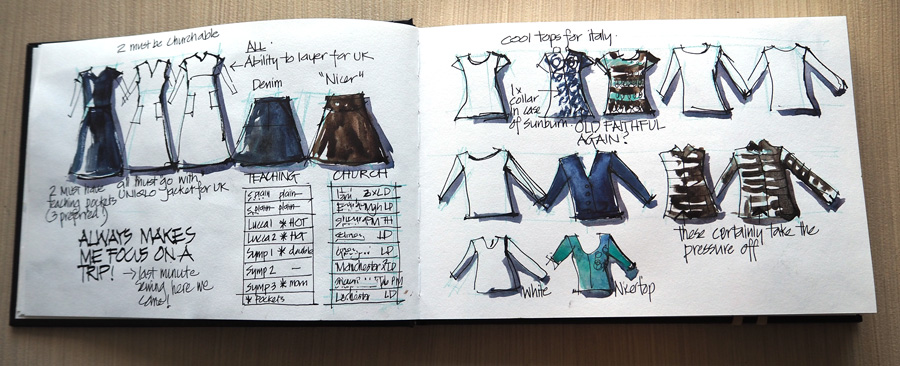 2 must be churchable
ALL.
Ability to layer for UK
Denim
"Nicer"
2 must have
teaching pockets
(3 preferred!)
all must go with
UNIQLO jacket for UK
ALWAYS MAKES
ME FOCUS ON A
TRIP!
→ last minute
sewing here we
come!
TEACHING
Spain plain
Spain plain
Lucca 1 * HOT
Lucca 2 * HOT
Symp 1 * double
Symp 2 —
Symp 3 * mom
* Pockets
CHURCH
LD
LD
TH
LD
LD
Manchester LD
PM
LD
cool tops for italy.
1x
collar
in case
of sunburn.
OLD FAITHFUL
AGAIN?
these certainly take the
pressure off!
White
Nicer top